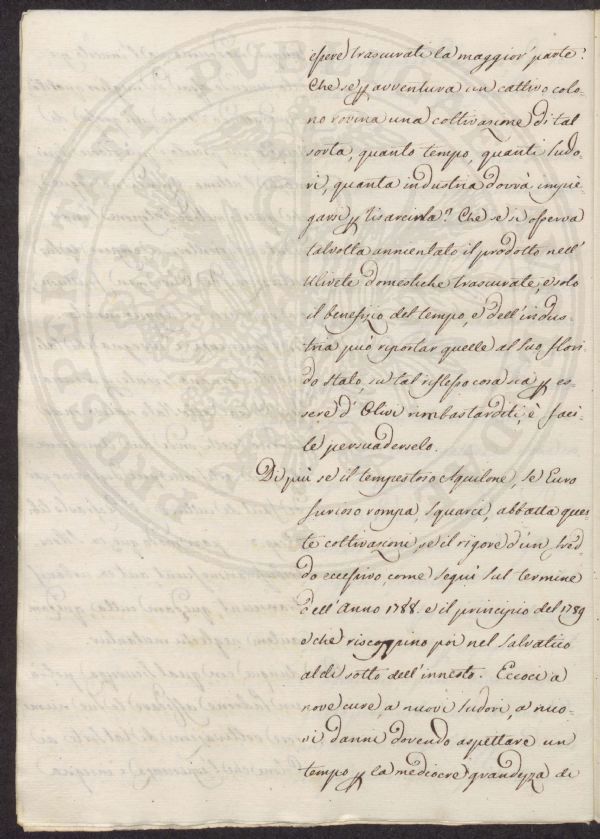 essere trascurati la maggior parte?
Che se p avventura un cattivo colo-
no rovina una coltivazione di tal
sorta, quanto tempo, quanti sudo-
ri, quanta industria dovrà impie-
garsi p risarcirla? Che se si osserva
talvolta annientato il prodotto nell'
Ulivete domestiche trascurate, e solo
il benefizio del tempo, e dell'indus-
tria può riportar quelle al suo flori-
do stato, su tal riflesso cosa sia p es-
sere d'Olivi rimbastarditi, è faci-
le persuaderselo.
Di più se il tempestoso Aquilone, se Euro
furioso rompa, squarci, abbatta ques-
te coltivazioni, se il rigore d'un fred-
do eccessivo, come seguì sul termine
dell'Anno 1788. e il principio del 1789
e che riscoppino poi nel salvatico
al di sotto dell'innesto. Eccoci a
nove cure, a nuovi sudori, a nuo-
vi danni dovendo aspettare un
tempo p la mediocre grandezza di